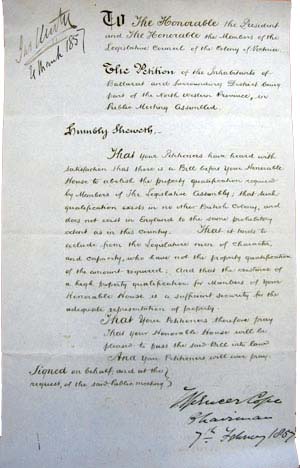 4 March 1857
To The Honorable the President
and The Honorable the Members of the
Legislative Council of the Colony of Victoria.
The Petition of the Inhabitants of
Ballarat and Surrounding District being
part of the North Western Province, in
Public Meeting Assembled.
Humbly Sheweth,
That Your Petitioners have heard with
satisfaction that there is a Bill before Your Honorable
House to abolish the property qualification required
by Members of The Legislative Assembly; that such
qualification exists in no other British Colony, and
does not exist in England to the same prohibitory
extent as in this Country. That it tends to
exclude from the Legislature men of character,
and capacity, who have not the property qualification
of the amount required; And that the existence of
a high property qualification for Members of Your
Honorable House is a sufficient security for the
adequate representation of property.
That Your Petitioners therefore pray
That your Honorable House will be
pleased to pass the said Bill into law
And Your Petitioners will ever pray.
Signed on behalf, and at the
request, of the said public meeting
Spencer Cope
Chairman
7th February 1857